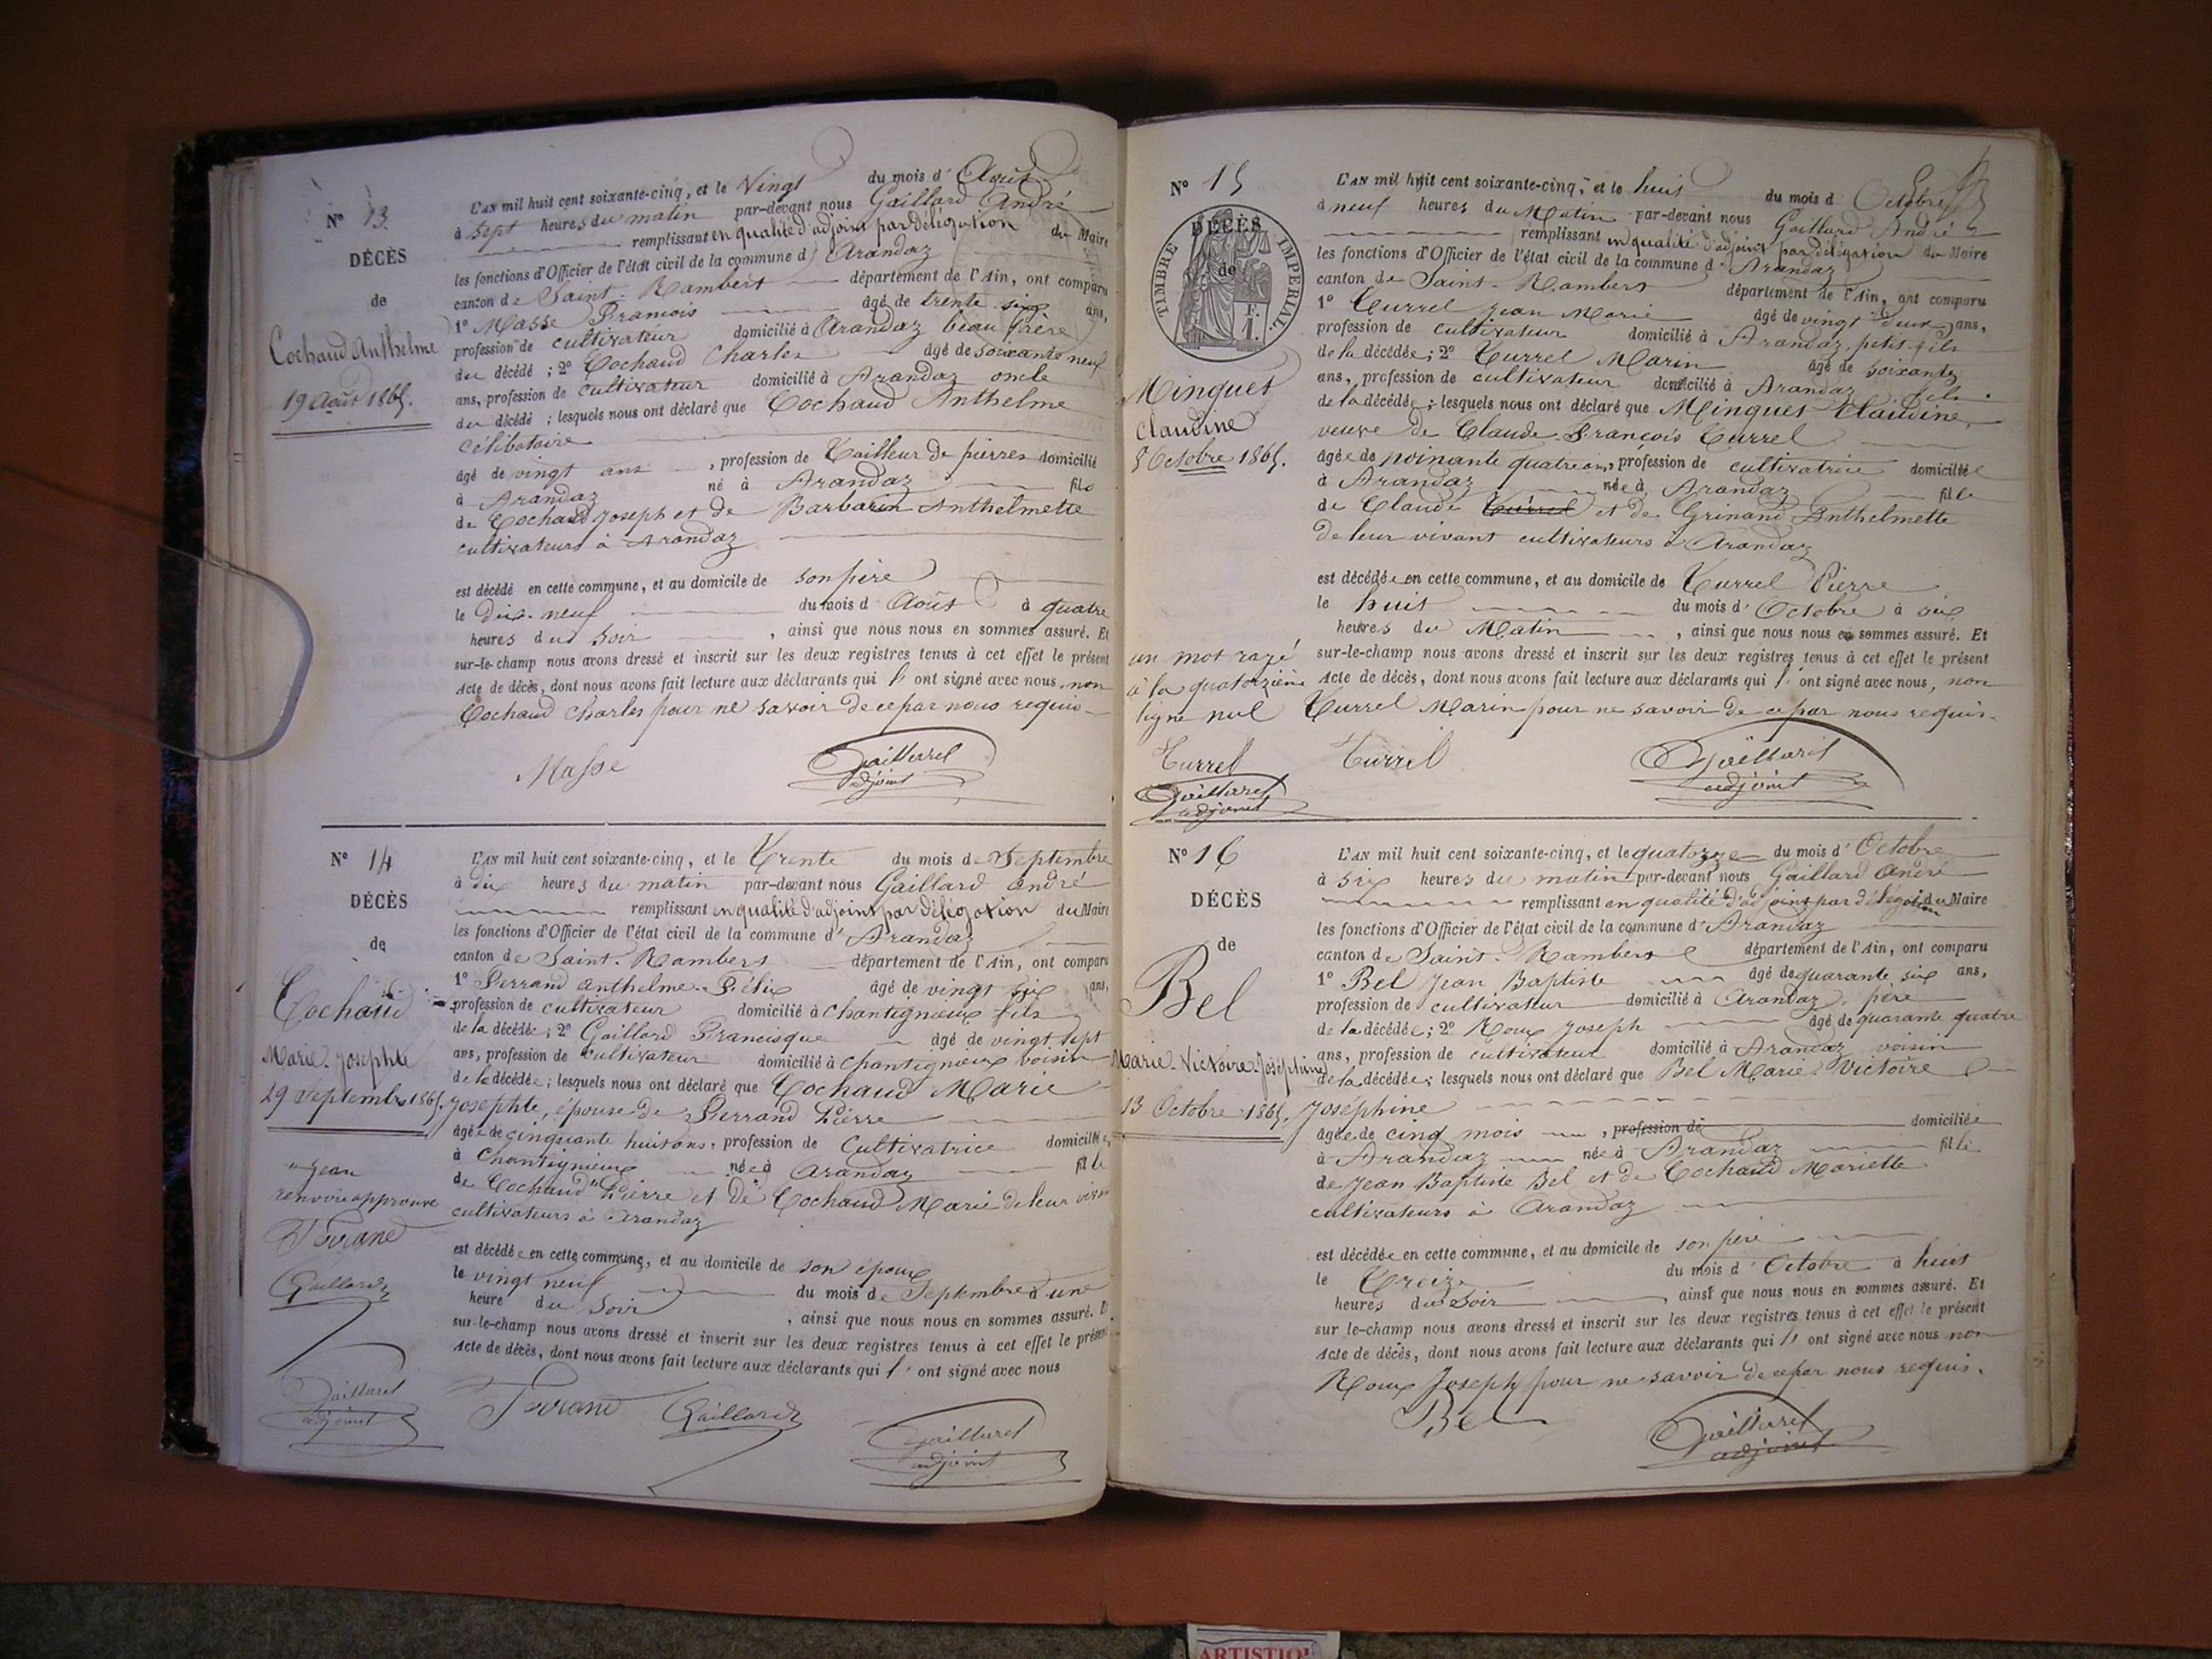 N° 13.
DÉCÈS
de
Cochaud Anthelme
19 Août 1865.
L'AN mil huit cent soixante-cinq, et le Vingt du mois d' Août
à sept heures du matin par-devant nous Gaillard André
remplissant en qualité d'adjoint par délégation du Maire
les fonctions d'Officier de l'état civil de la commune d' Arandaz
canton de Saint-Rambert département de l'Ain, ont comparu
1° Masse François âgé de trente six ans,
profession de cultivateur domicilié à Arandaz beau frère
du décédé ; 2° Cochaud Charles âgé de soixante neuf
ans, profession de cultivateur domicilié à Arandaz oncle
du décédé ; lesquels nous ont déclaré que Cochaud Anthelme
célibataire
âgé de vingt ans , profession de Tailleur de pierres domicilié
à Arandaz né à Arandaz fils
de Cochaud Joseph et de Barbarin Anthelmette
cultivateurs à Arandaz
est décédé en cette commune, et au domicile de son père
le dix-neuf du mois d' Août à quatre
heures du soir , ainsi que nous nous en sommes assuré. Et
sur-le-champ nous avons dressé et inscrit sur les deux registres tenus à cet effet le présent
Acte de décès, dont nous avons fait lecture aux déclarants qui l' ont signé avec nous, non
Cochaud Charles pour ne savoir de ce par nous requis
Masse Gaillard
adjoint
N° 14
DÉCÈS
de
Cochaud
Marie-Josephte
29 Septembre 1865.
"Jean
renvoi approuvé
Ferrand
Gaillard
Gaillard
adjoint
L'AN mil huit cent soixante-cinq, et le Trente du mois de Septembre
à dix heures du matin par-devant nous Gaillard André
remplissant en qualité d'adjoint par délégation du Maire
les fonctions d'Officier de l'état civil de la commune d' Arandaz
canton de Saint-Rambert département de l'Ain, ont comparu
1° Ferrand Anthelme-Félix âgé de vingt six ans,
profession de cultivateur domicilié à Chantignieux fils
de la décédée ; 2° Gaillard Francisque âgé de vingt sept
ans, profession de cultivateur domicilié à Chantignieux voisin
de la décédée ; lesquels nous ont déclaré que Cochaud Marie
Josephte, épouse de Ferrand Pierre
âgée de cinquante huit ans, profession de Cultivatrice domiciliée
à Chantignieux née à Arandaz fille
de Cochaud " Pierre et de Cochaud Marie de leur vivant
cultivateurs à Arandaz
est décédée en cette commune, et au domicile de son époux
le vingt neuf du mois de Septembre à une
heure du Soir , ainsi que nous nous en sommes assuré. Et
sur-le-champ nous avons dressé et inscrit sur les deux registres tenus à cet effet le présent
Acte de décès, dont nous avons fait lecture aux déclarants qui l' ont signé avec nous
Ferrand Gaillard Gaillard
adjoint
N° 15
DÉCÈS
de
TIMBRE IMPÉRIAL.
F.
1.
Minguet
Claudine
8 Octobre 1865.
un mot rayé
à la quatorzième
ligne nul
Turrel
Gaillard
adjoint
L'AN mil huit cent soixante-cinq, et le huit du mois d' Octobre
à neuf heures du Matin par-devant nous Gaillard André
remplissant en qualité d'adjoint par délégation du Maire
les fonctions d'Officier de l'état civil de la commune d' Arandaz
canton de Saint-Rambert département de l'Ain, ont comparu
1° Turrel Jean Marie âgé de vingt deux ans,
profession de cultivateur domicilié à Arandaz, petit fils
de la décédée ; 2° Turrel Marin âgé de soixante
ans, profession de cultivateur domicilié à Arandaz fils
de la décédée ; lesquels nous ont déclaré que Minguet Claudine,
veuve de Claude-François Turrel
âgée de noinante quatre ans, profession de cultivatrice domiciliée
à Arandaz née à Arandaz fille
de Claude Turrel et de Grinand Anthelmette
de leur vivant cultivateurs à Arandaz
est décédée en cette commune, et au domicile de Turrel Pierre
le huit du mois d' Octobre à six
heures du Matin , ainsi que nous nous en sommes assuré. Et
sur-le-champ nous avons dressé et inscrit sur les deux registres tenus à cet effet le présent
Acte de décès, dont nous avons fait lecture aux déclarants qui l' ont signé avec nous, non
Turrel Marin pour ne savoir de ce par nous requis.
Turrel Gaillard
adjoint
N° 16
DÉCÈS
de
Bel
Marie-Victoire-Joséphine
13 Octobre 1865.
L'AN mil huit cent soixante-cinq, et le quatorze du mois d' Octobre
à six heures du matin par-devant nous Gaillard André
remplissant en qualité d'adjoint par délégation du Maire
les fonctions d'Officier de l'état civil de la commune d' Arandaz
canton de Saint-Rambert département de l'Ain, ont comparu
1° Bel Jean Baptiste âgé de quarante six ans,
profession de cultivateur domicilié à Arandaz, père
de la décédée ; 2° Roux Joseph âgé de quarante quatre
ans, profession de cultivateur domicilié à Arandaz voisin
de la décédée ; lesquels nous ont déclaré que Bel Marie Victoire
Joséphine
âgée de cinq mois , profession de domiciliée
à Arandaz née à Arandaz fille
de Jean Baptiste Bel et de Cochaud Mariette
cultivateurs à Arandaz
est décédée en cette commune, et au domicile de son père
le Treize du mois d' Octobre à huit
heures du Soir , ainsi que nous nous en sommes assuré. Et
sur le-champ nous avons dressé et inscrit sur les deux registres tenus à cet effet le présent
Acte de décès, dont nous avons fait lecture aux déclarants qui l' ont signé avec nous non
Roux Joseph pour ne savoir de ce par nous requis.
Bel Gaillard
adjoint
ARTISTIQUE